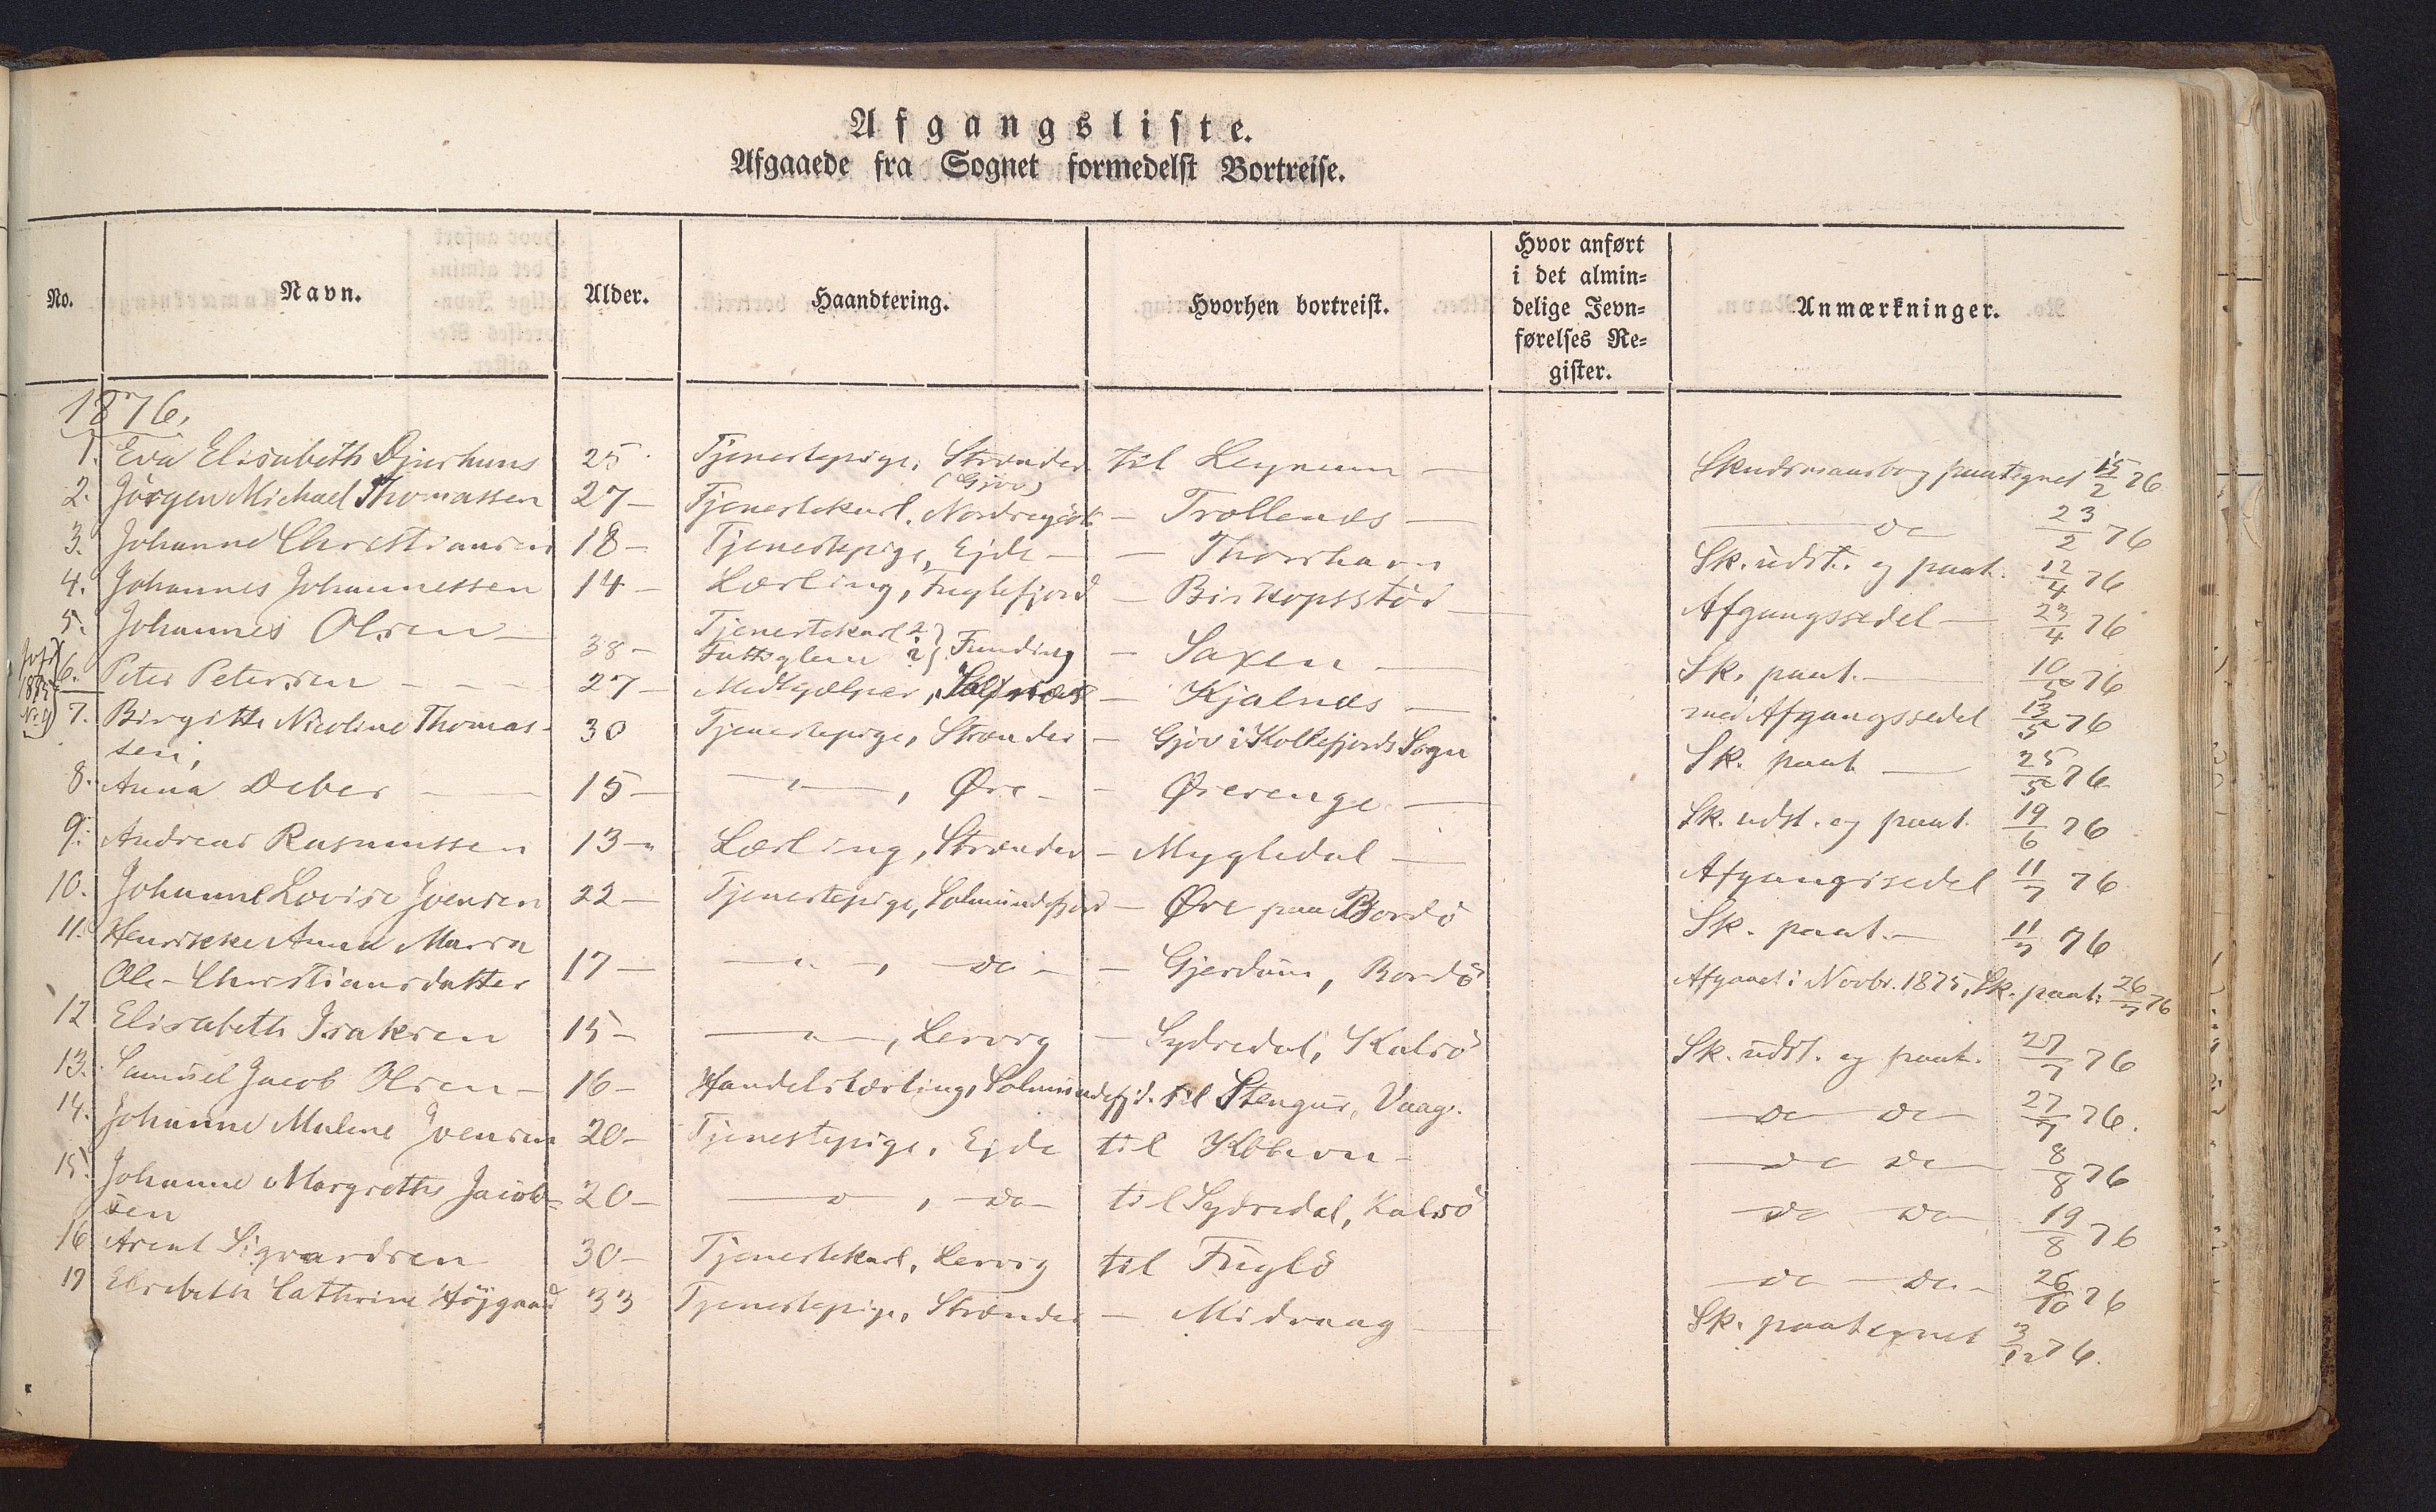 Afgangsliste.
Afgaaede fra Sognet formedelst Bortreise.
No. Navn. Alder. Haandtering. Hvorhen bortreist. Hvor anført i det almin= delige Jevn= førelses Re= gister. Anmærkninger.
1876.
1. Eva Elisabeth Djurhuus 25 Tjenestepige, Strænder til Leynum — paategnet 15/2 76
(Gjov)
2. Jörgen Michael Thomassen 27 — Tjenestekarl, — Trollenæs — do 23/2 76
3. Johanne Christiansen 18 — Tjenestepige, Ejde — — Thorshavn Sk. udst. og paat. 12/4 76
4. Johannes Johannessen 14 — Lærling, Fuglefjord — Biskopsstöd — Afgangssedel — 23/4 76
5. Johannes Olsen — 38 — Tjenestekarl ? } Funding — Saxen — Sk. paat. — 10/5 76
6. Peter Petersen — — 27 — Medhjælper, — Kjalnæs — med Afgangssedel 13/5 76
7. Birgitte Nicoline Thomas- 30 Tjenestepige, Strænder — Gjov i Kollefjords Sogn Sk. paat — 25/5 76
sen,
8. Anna Debes — — 15 — — " —, Øre — — Ørerenge — Sk. udst. og paat. 19/6 76
9. Andreas Rasmussen 13 — Lærling, Strænder — Mygledal — Afgangssedel 11/7 76
10. Johanne Lovise Joensen 22 — Tjenestepige, Solmundefjord — Øre paa Bordö Sk. paat. — 11/7 76
11. Henrikke Anna Maria
Ole-Christiansdatter 17 — — " —, do — — Gjerdum, Bordö Afgaaet i Novbr. 1875, Sk. paat. 26/7 76
12 Elisabeth Isaksen 15 — — " —, Lervig — Sydredal, Kalsö Sk. udst. og paat. 27/7 76
13. Samuel Jacob Olsen — 16 — Handelslærling, Solmundefjd. til Stengur, Vaag. — do do — 27/7 76.
14. Johanne Malene Joensen 20 — Tjenestepige, Ejde til Kbhvn — — do do — 8/8 76
15. Johanne Margrethe Jacob= 20 — — " —, do — til Sydredal, Kalsö — do do — 19/8 76
sen
16 Arent Sigvardsen 30 — Tjenestekarl, Lervig til Fuglö — do — do. — 26/10 76
17 Elsebeth Cathrine Höjgaard 33 Tjenestepige, Strænder — Midvaag — Sk. paategnet 3/12 76.